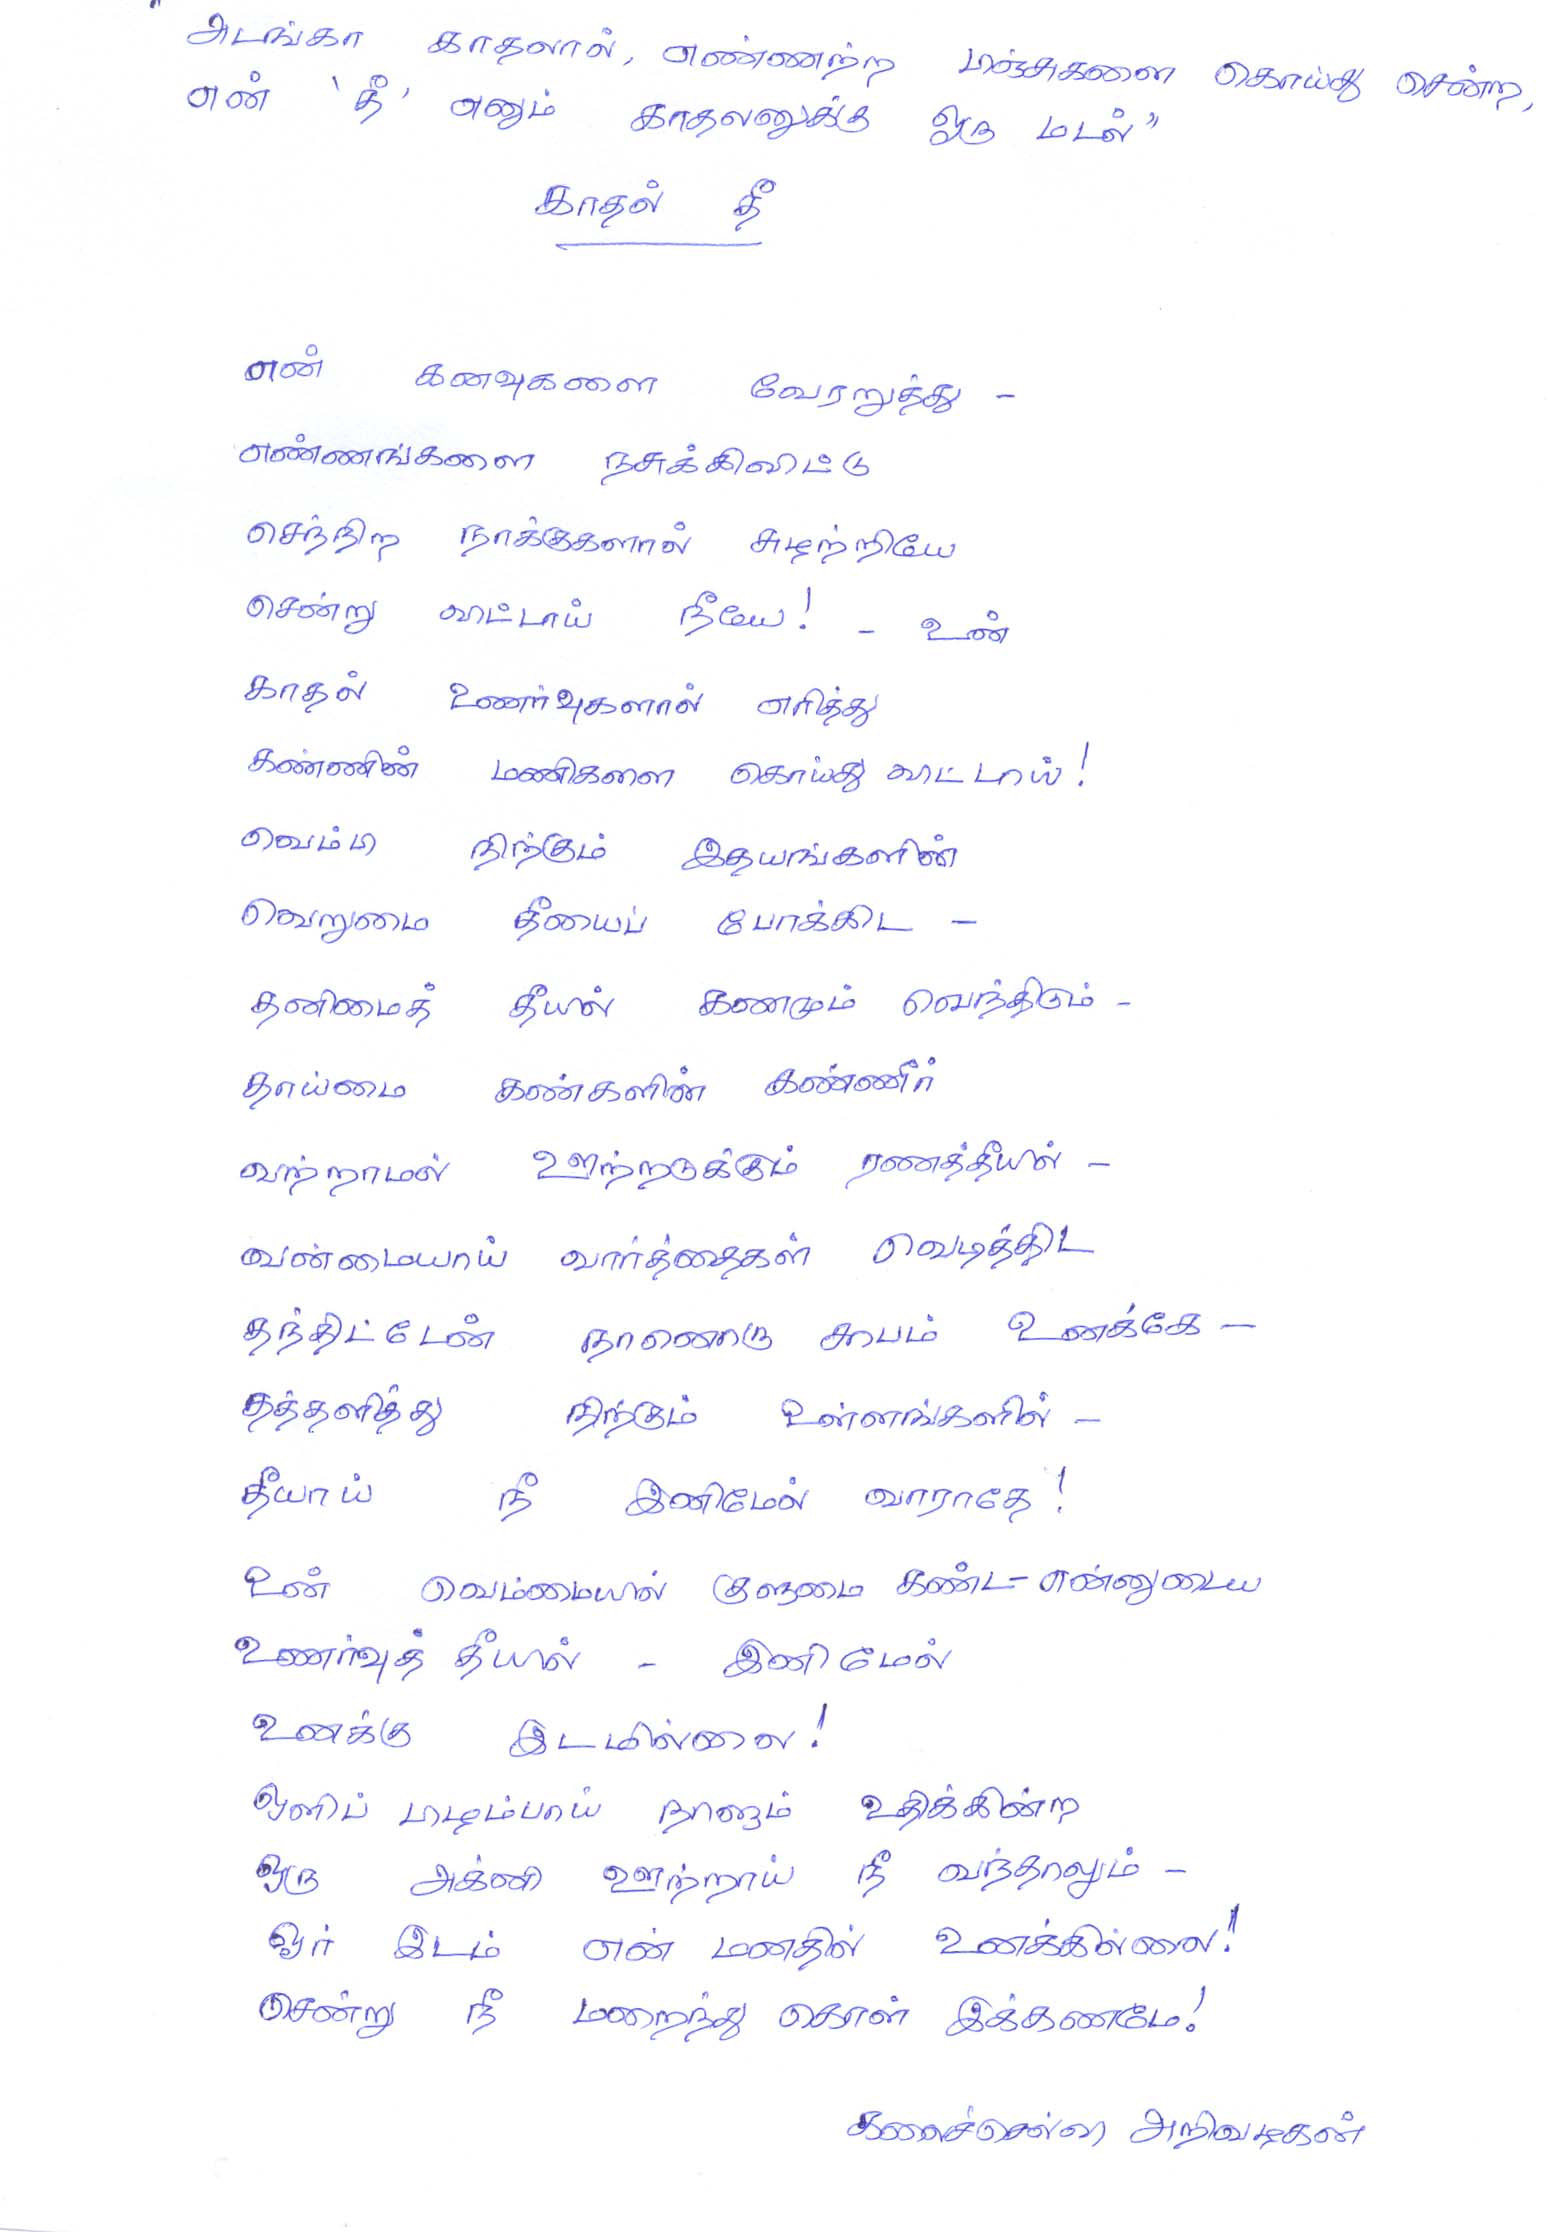 "அடங்கா காதலால், எண்ணற்ற பிஞ்சுகளை கொய்து சென்ற,
என் 'தீ' எனும் காதலனுக்கு ஒரு மடல்"
காதல் தீ
என் கனவுகளை வேரறுத்து -
எண்ணங்களை நசுக்கிவிட்டு
செந்நிற நாக்குகளால் சுழற்றியே
சென்று விட்டாய் நீயே! - உன்
காதல் உணர்வுகளால் எரித்து
கண்ணின் மணிகளை கொய்து விட்டாய்!
வெம்பி நிற்கும் இதயங்களின்
வெறுமை தீயைப் போக்கிட -
தனிமைத் தீயில் கணமும் வெந்திடும் -
தாய்மை கண்களின் கண்ணீர்
வற்றாமல் ஊற்றெடுக்கும் ரணத்தீயில் -
வன்மையாய் வார்த்தைகள் வெடித்திட
தந்திட்டேன் நானொரு சாபம் உனக்கே -
தத்தளித்து நிற்கும் உள்ளங்களில் -
தீயாய் நீ இனிமேல் வாராதே!
உன் வெம்மையில் குளுமை கண்ட - என்னுடைய
உணர்வுத் தீயில் - இனிமேல்
உனக்கு இடமில்லை!
ஒளிப் பிழம்பாய் நாளும் உதிக்கின்ற
ஒரு அக்னி ஊற்றாய் நீ வந்தாலும் -
ஓர் இடம் என் மனதில் உனக்கில்லை!
சென்று நீ மறைந்து கொள் இக்கணமே!
கலைச்செல்வி அறிவழகன்